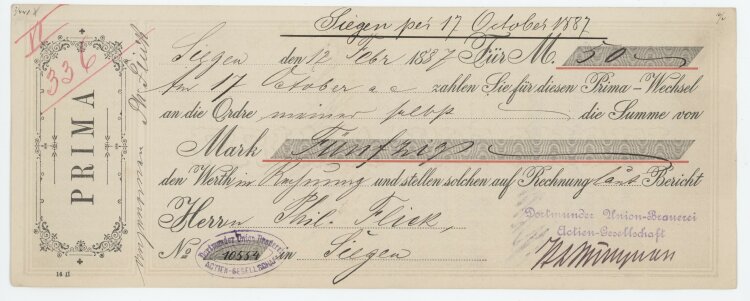 Siegen per 17 October 1887
Siegen den 12 Febr 1887 Für M. 50
Am 17 October a c zahlen Sie für diesen Prima-Wechsel
an die Ordre meiner selbst die Summe von
Mark Fünfzig
den Werth in Rechnung und stellen solchen auf Rechnung laut Bericht
Herrn Phil. Flick,
No 10554 in Siegen
Dortmunder Union-Brauerei
Actien-Gesellschaft
Dortmunder Union-Brauerei
ACTIEN-GESELLSCHAFT
PRIMA
VI
336
Angenommen Ph. Flick
14 II